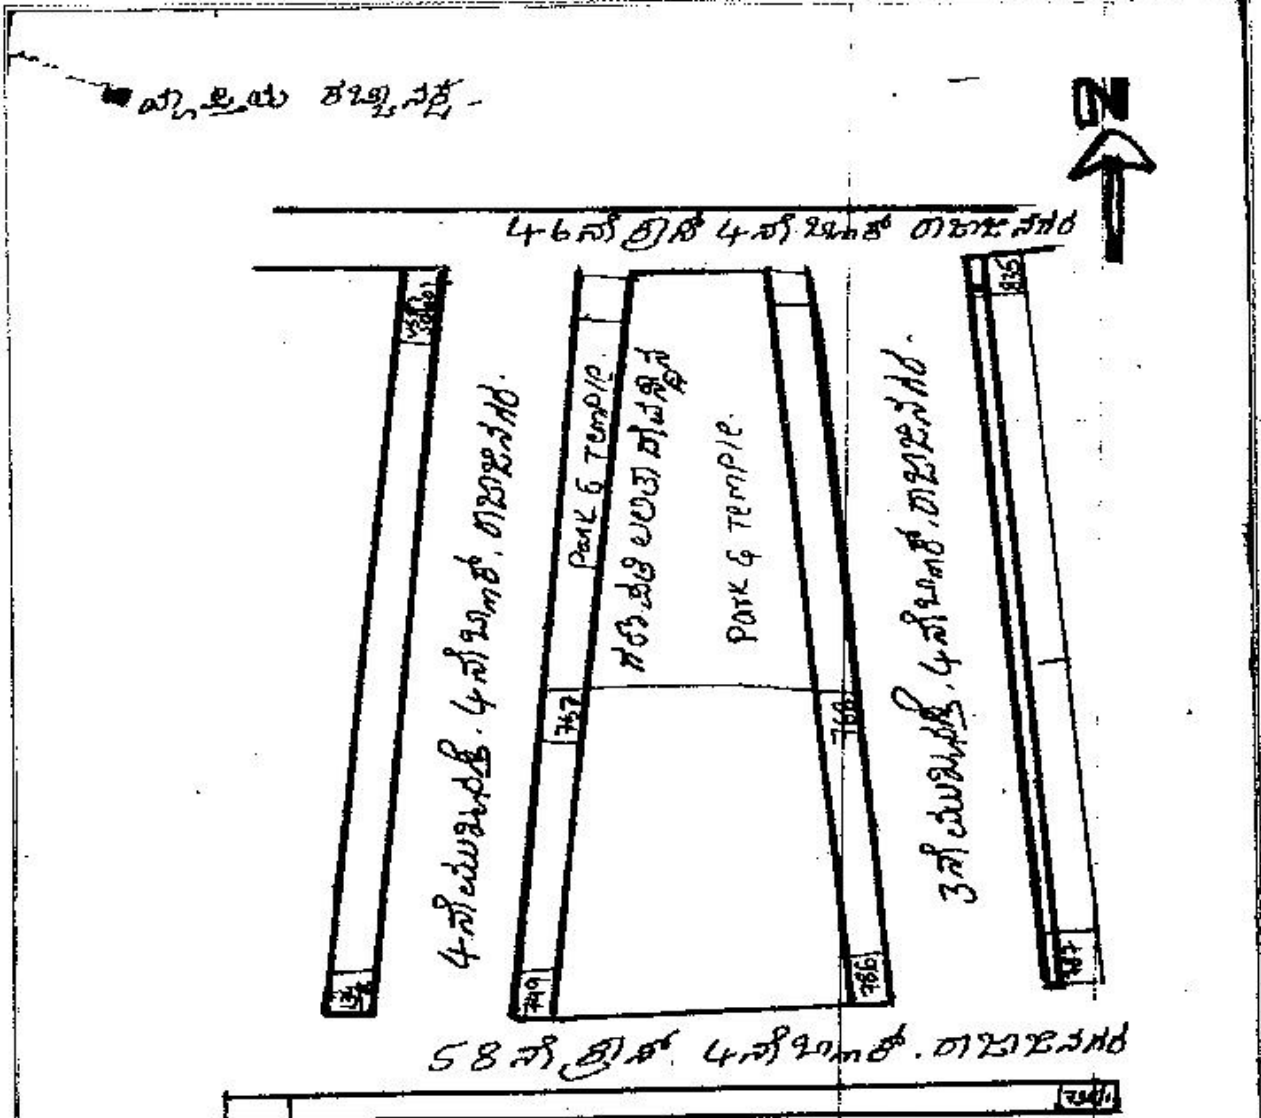 N
46ನೇ ಕ್ರಾಸ್ 4ನೇ ಬ್ಲಾಕ್ ರಾಜಾಜಿನಗರ
835
4ನೇ ಮುಖ್ಯರಸ್ತೆ. 4ನೇ ಬ್ಲಾಕ್. ರಾಜಾಜಿನಗರ.
Park & Temple.
ಗಣಪತಿ
Park & Temple.
3ನೇ ಮುಖ್ಯರಸ್ತೆ. 4ನೇ ಬ್ಲಾಕ್. ರಾಜಾಜಿನಗರ.
767
768
749
786
787
58ನೇ ಕ್ರಾಸ್. 4ನೇ ಬ್ಲಾಕ್. ರಾಜಾಜಿನಗರ